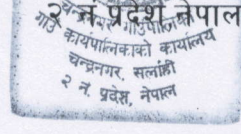 २ नं. प्रदेश नेपाल
चन्द्रनगर गाउँपालिका
गाउँ कार्यपालिकाको कार्यालय
चन्द्रनगर, सर्लाही
२ नं. प्रदेश, नेपाल